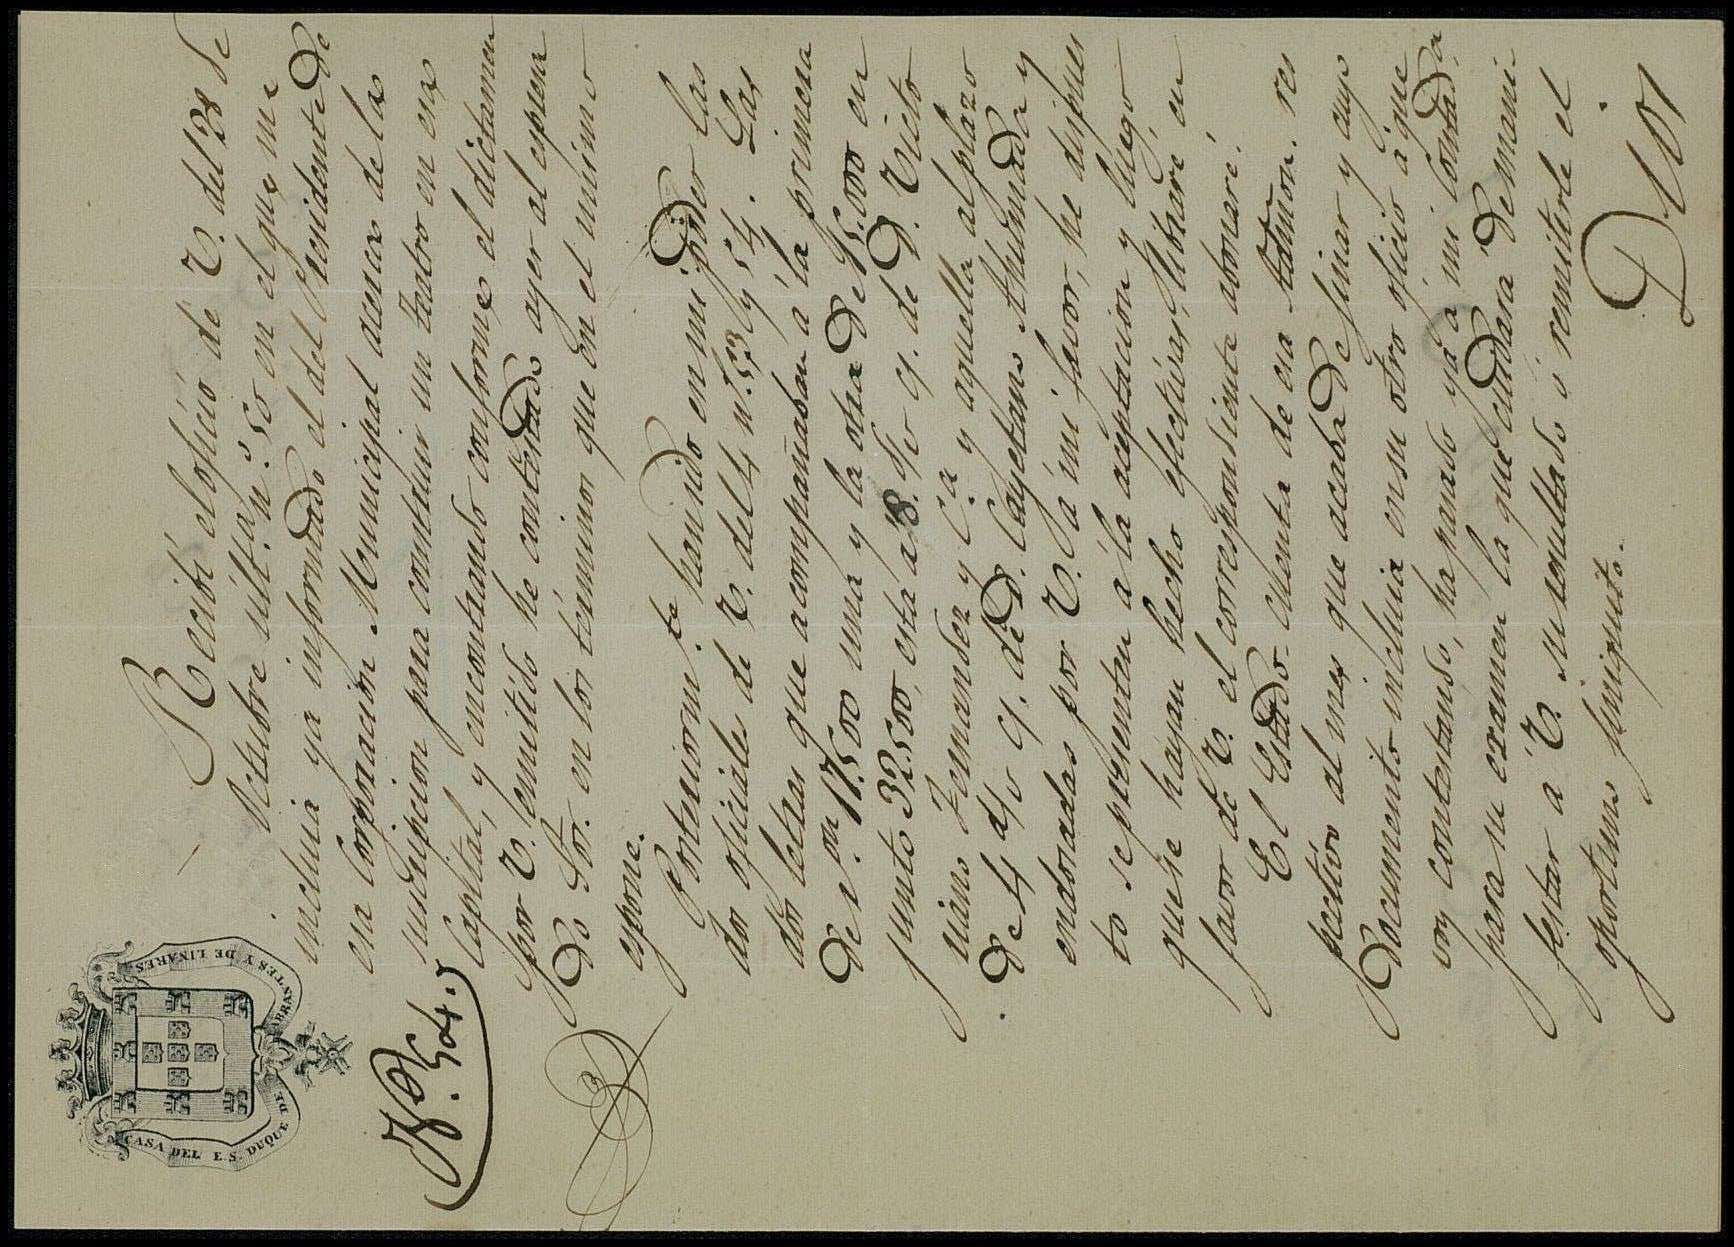 CASA DEL E. S. DUQUE DE ABRANTES Y DE LINARES
N.º 504.
Recibí el oficio de V. del 28 de
Octubre últ.º n.º 50 en el que me
incluía ya informado el del Presidente de
esa Corporación Municipal acerca de la
suscripcion para construir un teatro en esa
Capital, y encontrando conforme el dictamen
por V. emitido he contestado ayer al espresa
do Sor. en los términos que en el mismo
espone.
Posteriorm.te han sido en mi poder las
dos oficiale de V. del 4 n.os 53 y 54. Las
dos letras que acompañaban á la primera
de r.s v.on 17.500 una y la otra de 15.000 en
junto 32.500, esta á 8. d/v c/. de D. Victo
riano Fernandez y C.ª y aquella al plazo
de 4 d/v c/. de D. Cayetano Ahumada y
endosadas por V. á mi favor, he dispues
to se presenten á la aceptacion y luego
que se hayan hecho efectivas, libraré en
favor de V. el correspondiente abonaré.
El Estado-cuenta de esa Admon. res
pectivo al mes que acaba de finar y cuyo
documento incluia en su otro oficio á que
voy contestando, ha pasado ya á mi Contad.ª
para su examen la que cuidará de mani
festar á V. su resultado ó remitirle el
oportuno finiquito.
Dios